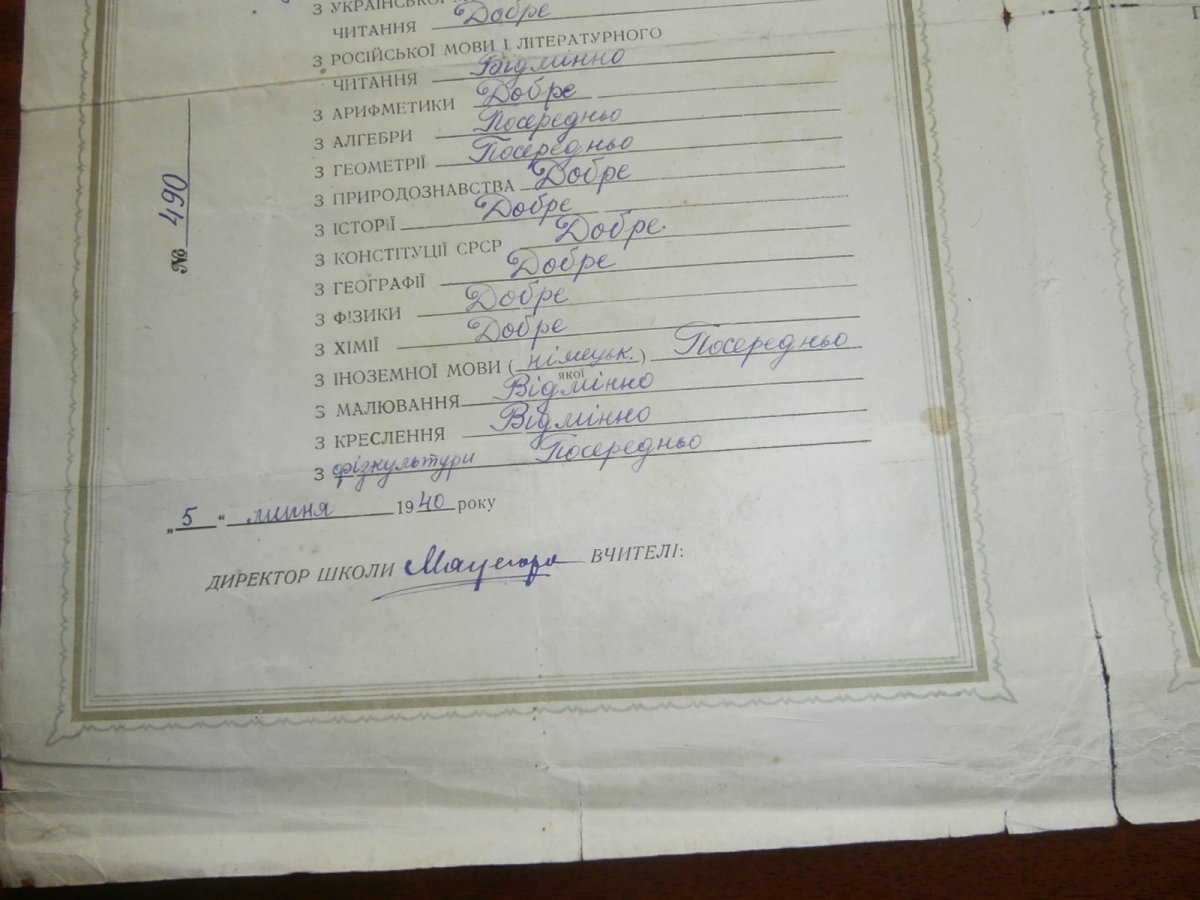 З УКРАЇНСЬКОЇ
ЧИТАННЯ Добре
З РОСІЙСЬКОЇ МОВИ І ЛІТЕРАТУРНОГО
ЧИТАННЯ Відмінно
З АРИФМЕТИКИ Добре
З АЛГЕБРИ Посередньо
З ГЕОМЕТРІЇ Посередньо
З ПРИРОДОЗНАВСТВА Добре
З ІСТОРІЇ Добре
З КОНСТІТУЦІЇ СРСР Добре.
З ГЕОГРАФІЇ Добре
З ФІЗИКИ Добре
З ХІМІЇ Добре
З ІНОЗЕМНОЇ МОВИ (німецьк.) Посередньо
якої
З МАЛЮВАННЯ Відмінно
З КРЕСЛЕННЯ Відмінно
З фізкультури Посередньо
„5“ липня 1940 року
ДИРЕКТОР ШКОЛИ ВЧИТЕЛІ:
№ 490